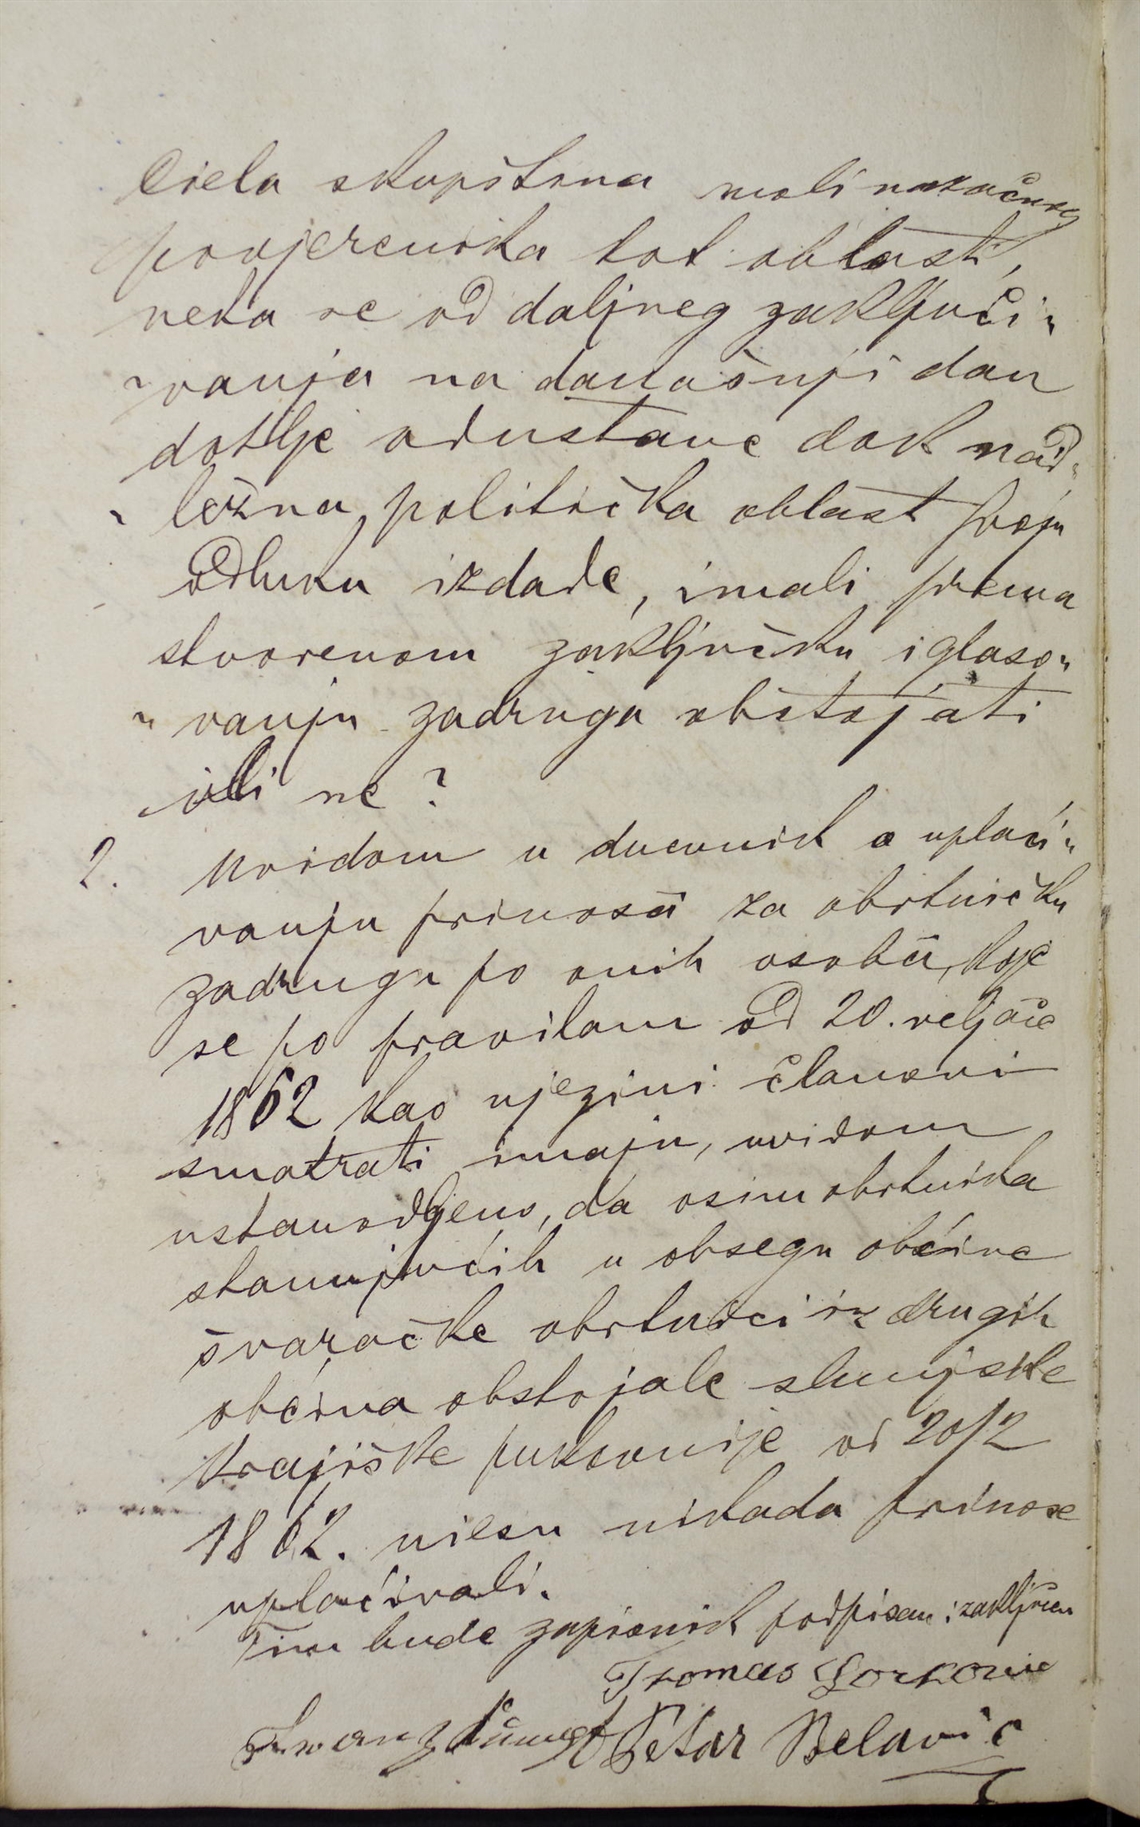 Ciela skupština moli nazočnog
povjerenika kot. oblasti,
neka se od daljneg zaključi„
„vanja na današnji dan
dotlje odustane dok nad„
„ležna politička oblast svoju
odluku izdade, imali prema
stvorenom zaključku i glaso„
„vanju zadruga obstojati
ili ne?
2. Uvidom u dnevnik o uplaći„
vanju prinosâ za obrtničku
zadrugu po onih osobâ, koje
se po pravilam od 20. veljače
1862 kao njezini članovi
smatrati imaju, uvidom
ustanovljeno, da osim obrtnika
stanujućih u obsegu obćine
švaračke obrtnici iz drugih
obćina obstojale slunjske
krajiške pukovnije od 20/2
1862. niesu nikada prinose
uplaćivali.
Tim bude zapisnik podpisan i zaključen
Thomas Lorković
Franz Petar Belavić